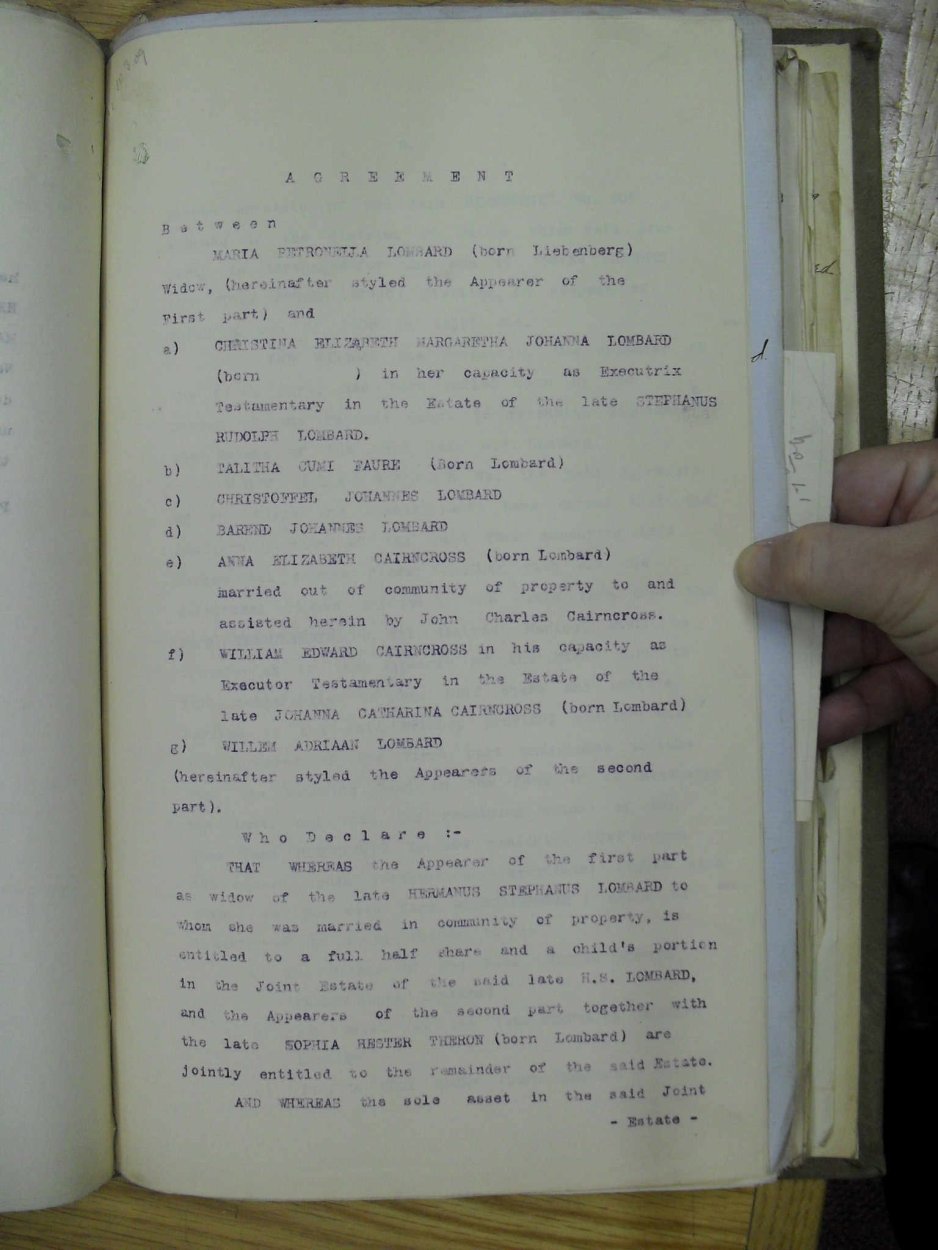 A G R E E M E N T
B e t w e e n
MARIA PETRONELLA LOMBARD (born Liebenberg)
Widow, (hereinafter styled the Appearer of the
First part) and
a) CHRISTINA ELIZABETH MARGARETHA JOHANNA LOMBARD
(born ) in her capacity as Executrix
Testamentary in the Estate of the late STEPHANUS
RUDOLPH LOMBARD.
b) TALITHA CUMI FAURE (Born Lombard)
c) CHRISTOFFEL JOHANNES LOMBARD
d) BAREND JOHANNES LOMBARD
e) ANNA ELIZABETH CAIRNCROSS (born Lombard)
married out of community of property to and
assisted herein by John Charles Cairncross.
f) WILLIAM EDWARD CAIRNCROSS in his capacity as
Executor Testamentary in the Estate of the
late JOHANNA CATHARINA CAIRNCROSS (born Lombard)
g) WILLEM ADRIAAN LOMBARD
(hereinafter styled the Appearers of the second
part).
W h o D e c l a r e :-
THAT WHEREAS the Appearer of the first part
as widow of the late HERMANUS STEPHANUS LOMBARD to
whom she was married in community of property, is
entitled to a full half share and a child's portion
in the Joint Estate of the said late H.S. LOMBARD,
and the Appearers of the second part together with
the late SOPHIA HESTER THERON (born Lombard) are
jointly entitled to the remainder of the said Estate.
AND WHEREAS the sole asset in the said Joint
- Estate -